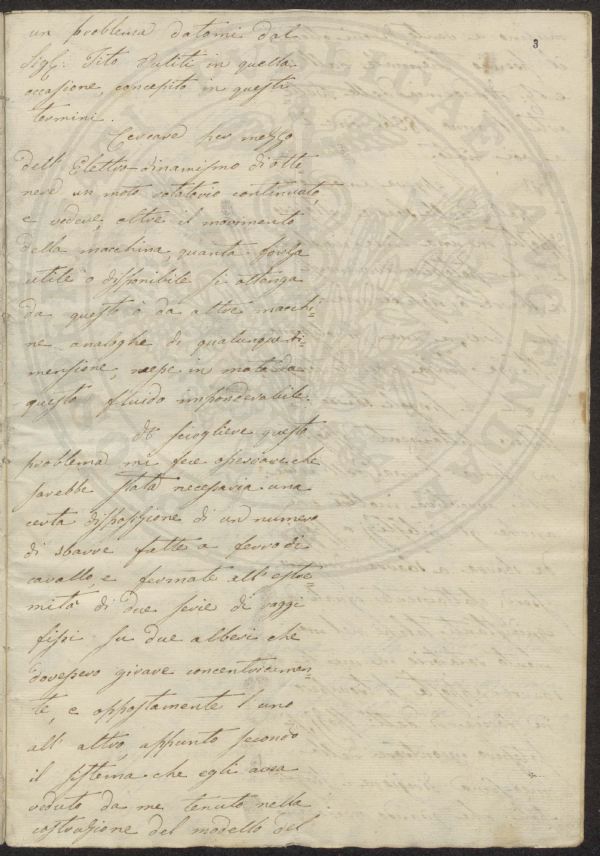 3
un problema datomi dal
Sigr: Tito Puliti in quella
occasione, concepito in questi
termini.
Cercare per mezzo
dell' Elettro-dinamismo di otte-
nere un moto rotatorio continuato,
e vedere, oltre il movimento
della macchina, quanta forza
utile o disponibile si ottenga
da questo o da altre macchi=
ne analoghe di qualunque di-
mensione, messe in moto da
questo fluido imponderabile.
Il sciogliere questo
problema mi fece osservare che
sarebbe stata necessaria una
certa disposizione di un numero
di sbarre fatte a ferro di
cavallo, e fermate all' estre=
mità di due serie di raggi
fissi su due alberi che
dovessero girare concentricamen=
te, e oppostamente l' uno
all' altro, appunto secondo
il sistema che egli avea
veduto da me tenuto nella
costruzione del modello del